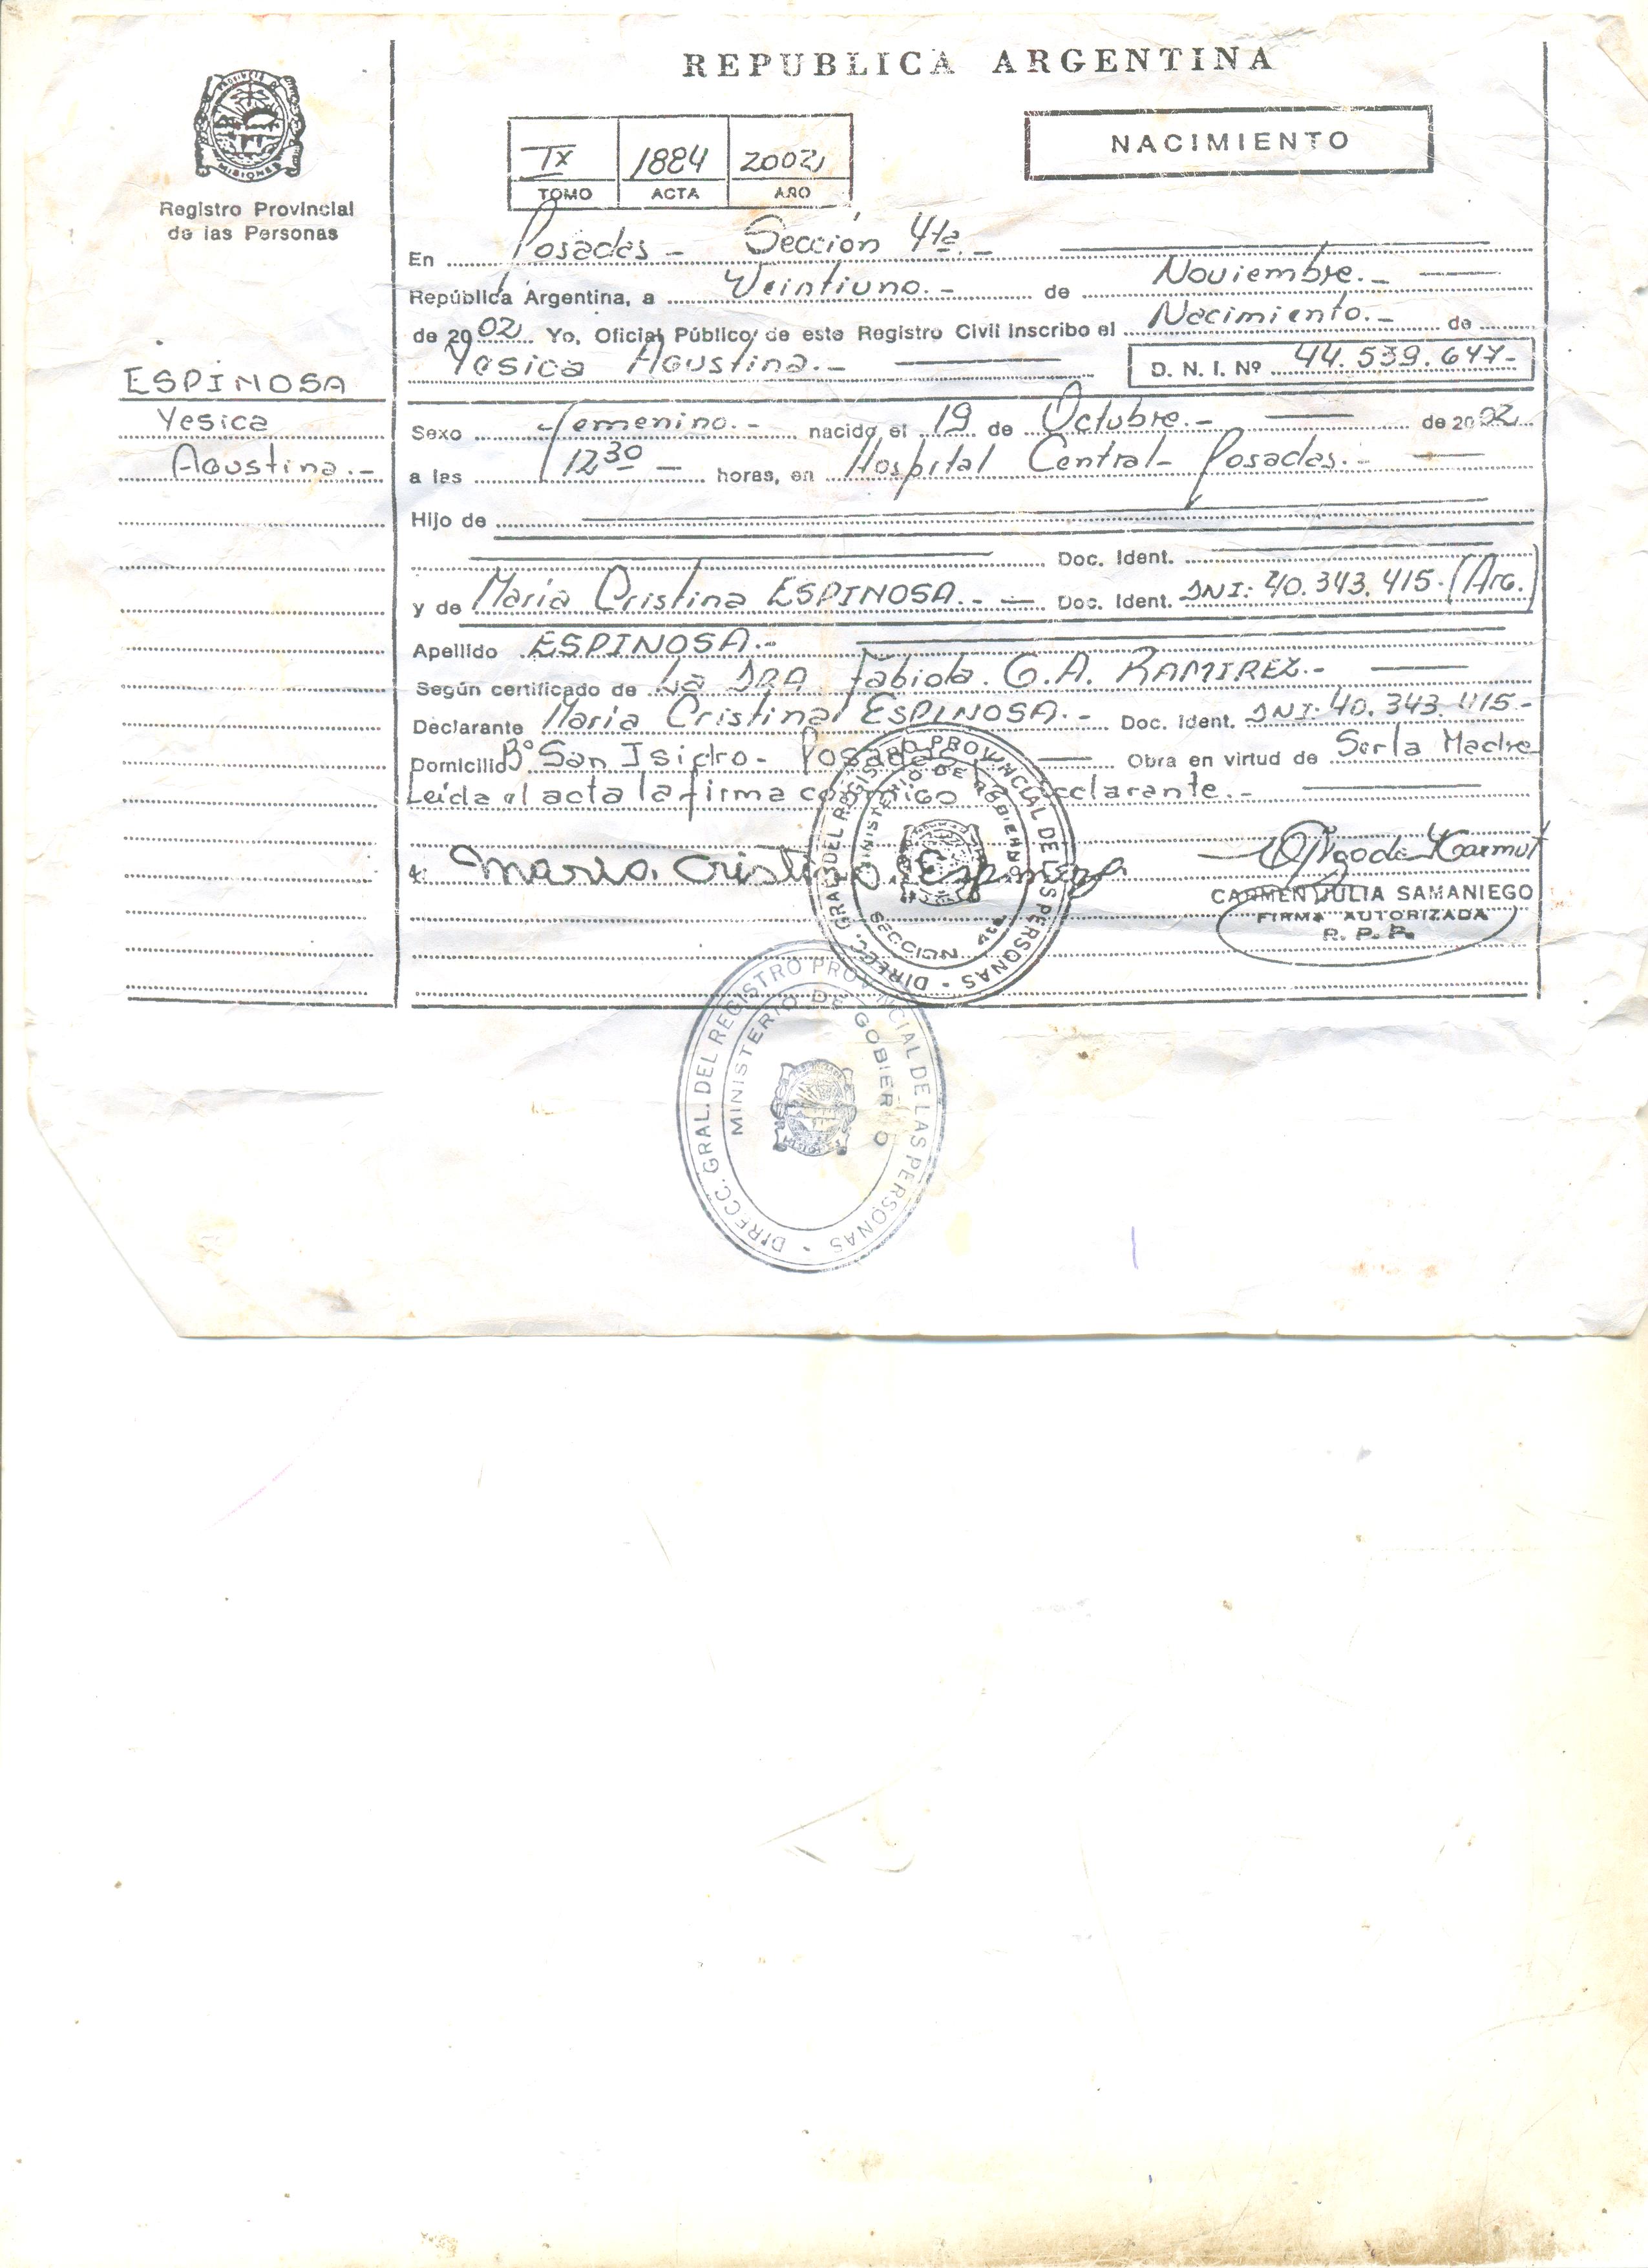 REPUBLICA ARGENTINA
PROVINCIA D MISIONES
Registro Provincial
de las Personas
NACIMIENTO
IX 1884 2002
TOMO ACTA AÑO
En Posadas - Sección 4ta.-
República Argentina, a Veintiuno.- de Noviembre.-
de 2002 Yo, Oficial Público de este Registro Civil Inscribo el Nacimiento.- de
Yesica Agustina.- D. N. I. Nº 44.539.647-
ESPINOSA
Yesica
Agustina.-
Sexo femenino.- nacido el 19 de Octubre.- de 2002
a las 12 30 - horas, en Hospital Central - Posadas.-
Hijo de
Doc. Ident.
y de María Cristina ESPINOSA.- Doc. Ident. DNI: 40.343.415.(Arg.)
Apellido ESPINOSA.-
Según certificado de La DRA Fabiola. G.A. RAMIREZ.-
Declarante María Cristina ESPINOSA.- Doc. Ident. DNI: 40.343.415.-
Domicilio Bº San Isidro - Posadas Obra en virtud de Ser la Madre
Leída el acta la firma conmigo la declarante.-
Maria. Cristina. Espinoza
CARMEN JULIA SAMANIEGO
FIRMA AUTORIZADA
R. P. P.
DIRECC. GRAL. DEL REGISTRO PROVINCIAL DE LAS PERSONAS
MINISTERIO DE GOBIERNO
SECCION 4ta
DIRECC. GRAL. DEL REGISTRO PROVINCIAL DE LAS PERSONAS
MINISTERIO DE GOBIERNO